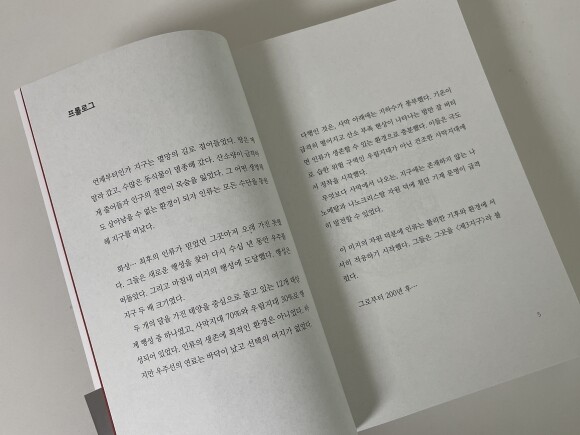 프롤로그
언제부터인가 지구는 멸망의 길로 접어들었다. 땅은 메
말라 갔고, 수많은 동식물이 멸종해 갔다. 산소량이 급격하
게 줄어들자 인구의 절반이 목숨을 잃었다. 그 어떤 생명체
도 살아남을 수 없는 환경이 되자 인류는 모든 수단을 동원
해 지구를 떠났다.
화성… 최후의 인류가 믿었던 그곳마저 오래 가진 못했
다. 그들은 새로운 행성을 찾아 다시 수십 년 동안 우주를
떠돌았다. 그리고 마침내 미지의 행성에 도달했다. 행성은
지구 두 배 크기였다.
두 개의 달을 가진 태양을 중심으로 돌고 있는 12개 태양
계 행성 중 하나였고, 사막지대 70%와 우림지대 30%로 형
성되어 있었다. 인류의 생존에 최적인 환경은 아니었다. 하
지만 우주선의 연료는 바닥이 났고 선택의 여지가 없었다.
다행인 것은, 사막 아래에는 지하수가 풍부했다. 기온이
급격히 떨어지고 산소 부족 현상이 나타나는 밤만 잘 버티
면 인류가 생존할 수 있는 환경으로 충분했다. 이들은 극도
로 습한 위험 구역인 우림지대가 아닌 건조한 사막지대에
서 정착을 시작했다.
무엇보다 사막에서 나오는, 지구에는 존재하지 않는 나
노메탈과 나노크리스탈 자원 덕에 첨단 기계 문명이 급격
히 발전할 수 있었다.
이 미지의 자원 덕분에 인류는 불리한 기후와 환경에 서
서히 적응하기 시작했다. 그들은 그곳을 〈제2지구〉라 불
렀다.
그로부터 200년 후…
5